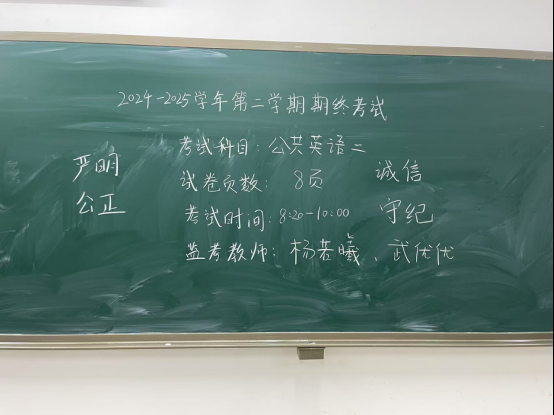 2024-2025学年第二学期期终考试
考试科目：公共英语二
试卷页数：8页
考试时间：8:20-10:00
监考教师：杨若曦、武优优
严明
公正
诚信
守纪